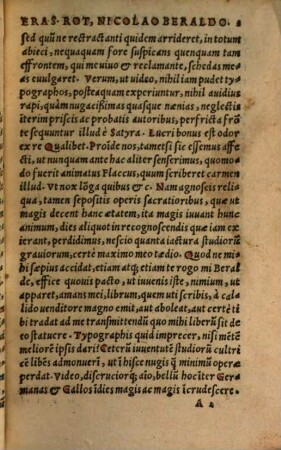 ERAS. ROT, NICOLAO BERALDO.
sed quũ ne rectractanti quidem arrideret, in totum
abieci, nequaquam fore suspicans quenquam tam
effrontem, qui me uiuo & reclamante, schedas me-
as euulgaret. Verum, ut uideo, nihil iam pudet ty-
pographos, posteaquam experiuntur, nihil auidius
rapi, quàm nugacissimas quasque nænias, neglectis in
terim priscis ac probatis autoribus, perfricta frõ
te sequuntur illud è Satyra. Lucri bonus est odor
ex re Qualibet. Proĩde nos, tametsi sic essemus affe
cti, ut nunquam ante hac aliter senserimus, quomo-
do fuerit animatus Flaccus, quum scriberet carmen
illud. Vt nox lõga quibus & c. Nam agnoseis reli
qua, tamen sepositis operis sacratioribus, quæ ut
magis decent hanc ætatem, ita magis iuuant hunc
animum, dies aliquot in recognoscendis quæ iam ex
ierant, perdidimus, nescio quanta iactura studiorũ
grauiorum, certè maximo meo tædio. Quod ne mi
hi sæpius accidat, etiam atq; etiam te rogo mi Beral
de, effice quouis pacto, ut iuuenis iste, nimium, ut
apparet, amans mei, librum, quem uti scribis, à ca-
lido uenditore magno emit, aut aboleat, aut certè ti
bi tradat ad me transmittendũ quo mihi liberũ sit de
eo statuere. Typographis quid imprecer, nisi mẽtẽ
meliorẽ ipsis dari? Ceterũ iuuentutẽ studiorũ cultri
cẽ libẽs admonuerĩ, ut istiusce nugis q̃ minimũ operæ
perdat. Video, discruciorq; aĩo, bellũ hoc ĩter Ger
manas & Gallos ĩdies magis ac magis ĩcrudescere.
A 2